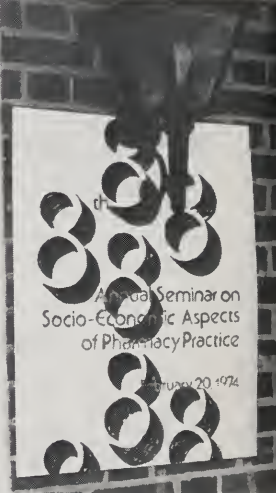 th
Annual Seminar on
Socio-Economic Aspects
of Pharmacy Practice
February 20, 1974